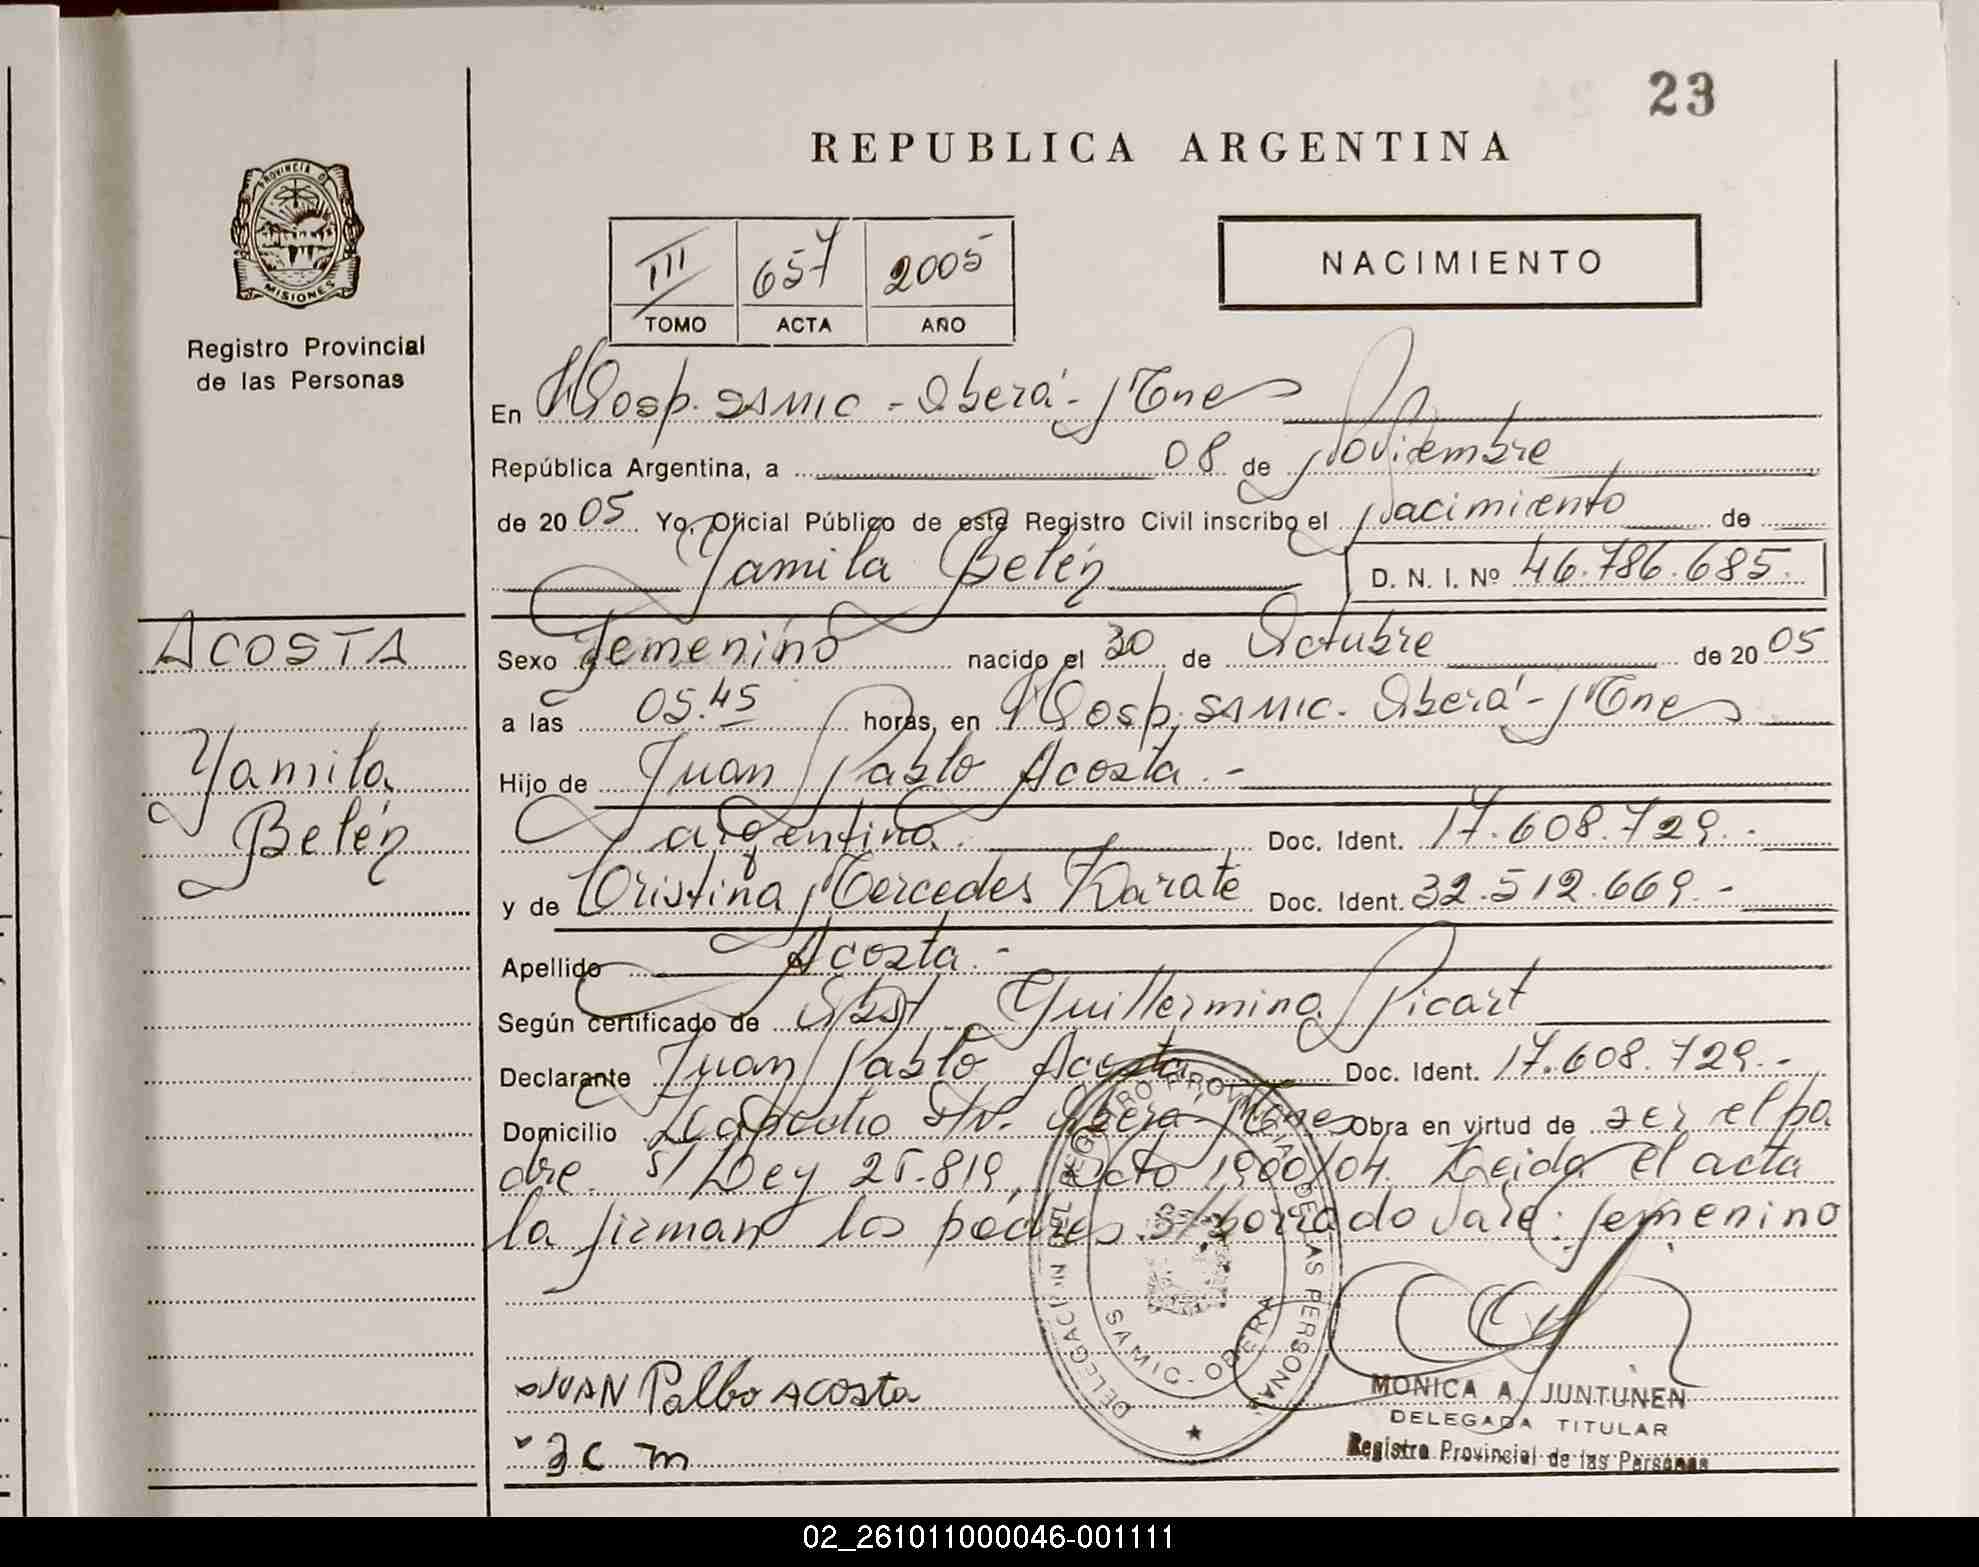 23
REPUBLICA ARGENTINA
PROVINCIA DE
MISIONES
Registro Provincial
de las Personas
III 657 2005
TOMO ACTA AÑO
NACIMIENTO
En Hosp. SAMIC - Oberá - Mnes
República Argentina, a 08 de Noviembre
de 20 05 Yo, Oficial Público de este Registro Civil inscribo el Nacimiento de
Yamila Belén D. N. I. Nº 46.786.685.
ACOSTA
Yamila
Belén
Sexo femenino nacido el 30 de Octubre de 20 05
a las 05.45 horas, en Hosp. SAMIC. Oberá - Mnes
Hijo de Juan Pablo Acosta.-
argentino. Doc. Ident. 17.608.729.-
y de Cristina Mercedes Zarate Doc. Ident. 32.512.669.-
Apellido Acosta.-
Según certificado de Obst Guillermina Picart
Declarante Juan Pablo Acosta Doc. Ident. 17.608.729.-
Domicilio Oberá - Mnes Obra en virtud de ser el pa
dre. s/ Ley 25.819, Dcto 1900/04. Leida el acta
la firman los padres. s/borrado vale: femenino
DELEGACION DEL REGISTRO PROVINCIAL DE LAS PERSONAS
SAMIC - OBERA
JUAN Palbo Acosta
MONICA A. JUNTUNEN
DELEGADA TITULAR
Registro Provincial de las Personas
02_261011000046-001111